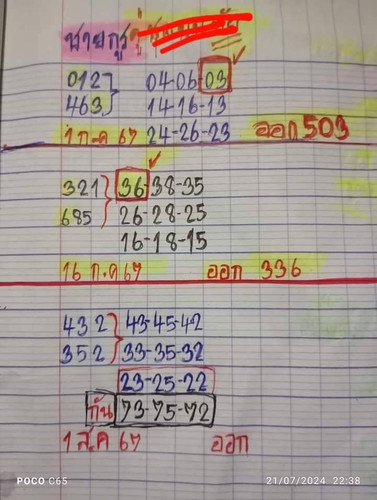 ชายกรู่
012 04-06-03
463 14-16-13
1 ก.ค 67 24-26-23 ออก 503
321 36-38-35
685 26-28-25
16-18-15
16 ก.ค 67 ออก 336
432 43-45-42
352 33-35-32
23-25-22
กัน 73-75-72
1 ส.ค 67 ออก
POCO C65 21/07/2024 22:38